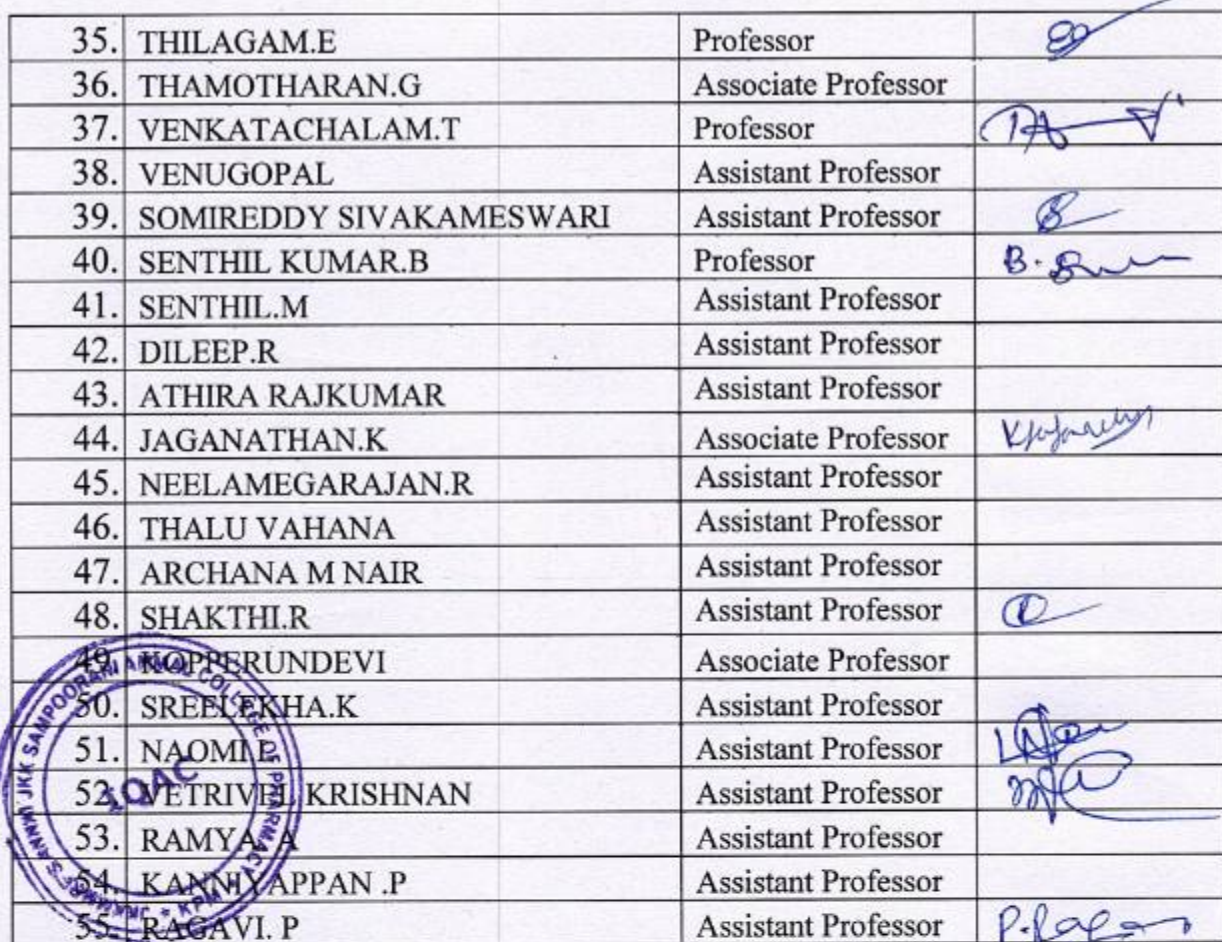 35. THILAGAM.E Professor
36. THAMOTHARAN.G Associate Professor
37. VENKATACHALAM.T Professor
38. VENUGOPAL Assistant Professor
39. SOMIREDDY SIVAKAMESWARI Assistant Professor
40. SENTHIL KUMAR.B Professor B.
41. SENTHIL.M Assistant Professor
42. DILEEP.R Assistant Professor
43. ATHIRA RAJKUMAR Assistant Professor
44. JAGANATHAN.K Associate Professor
45. NEELAMEGARAJAN.R Assistant Professor
46. THALU VAHANA Assistant Professor
47. ARCHANA M NAIR Assistant Professor
48. SHAKTHI.R Assistant Professor
49. KOPPERUNDEVI Associate Professor
50. SREELEKHA.K Assistant Professor
51. NAOMI Assistant Professor
52. VETRIVEL KRISHNAN Assistant Professor
53. RAMYA A Assistant Professor
54. KANNIYAPPAN .P Assistant Professor
55. RAGAVI. P Assistant Professor
JKKMMRF'S ANNAI JKK SAMPOORANI AMMAL COLLEGE OF PHARMACY
IQAC